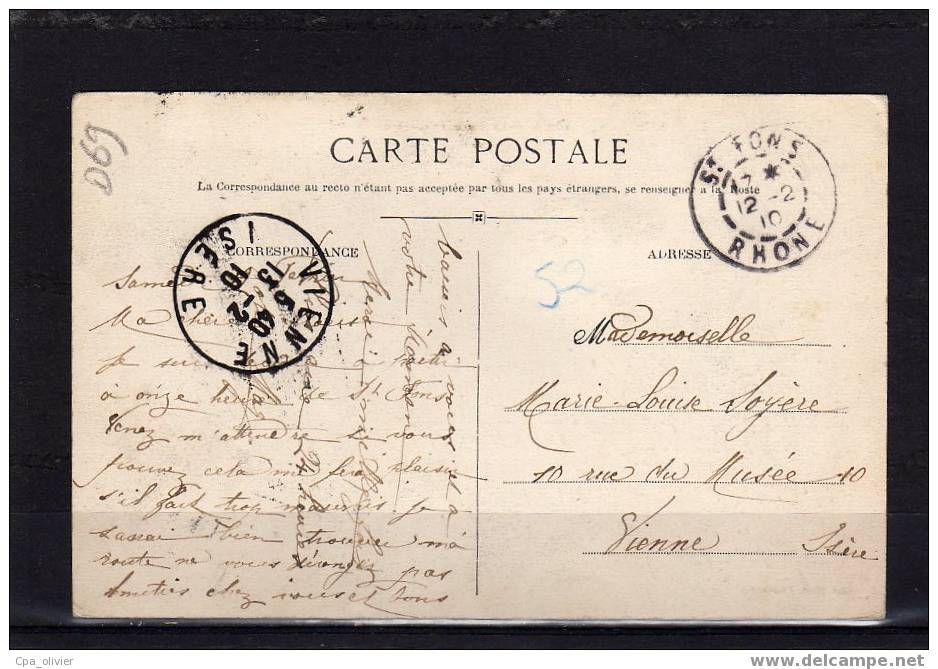 D69
CARTE POSTALE
La Correspondance au recto n'étant pas acceptée par tous les pays étrangers, se renseigner à la Poste
CORRESPONDANCE
ADRESSE
ST FONS
12 -2
10
RHONE
VIENNE
13 -2
10
ISERE
52
Samedi
Ma
Je à
à onze heures de St Fons
Venez m'attendre si vous
pouvez cela me fera plaisir
s'il fait trop mauvais je
saurai bien trouver ma
route ne vous dérangez pas
Amitiés chez vous et tous
baisers à vous et à
votre
Mademoiselle
Marie-Louise Soyère
10 rue du Musée 10
Vienne Isère
Cpa_olivier
www.delcampe.net